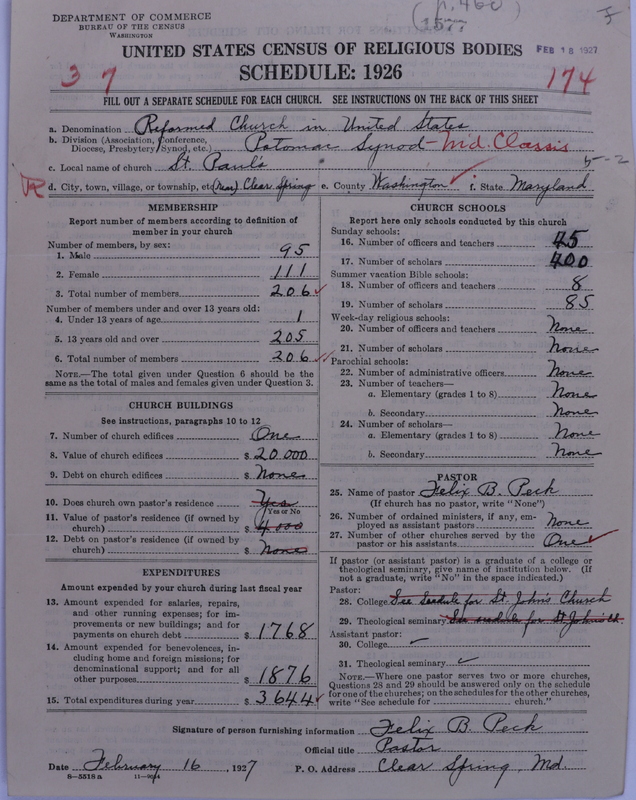 DEPARTMENT OF COMMERCE
BUREAU OF THE CENSUS
WASHINGTON
UNITED STATES CENSUS OF RELIGIOUS BODIES
FEB 18 1927
SCHEDULE: 1926
37
174
FILL OUT A SEPARATE SCHEDULE FOR EACH CHURCH. SEE INSTRUCTIONS ON THE BACK OF THIS SHEET
a. Denomination Reformed Church in United States
b. Division (Association, Conference, Diocese, Presbytery, Synod, etc.) Potomac Synod - Md. Classis
c. Local name of church St. Paul's
5-2
d. City, town, village, or township, etc. (near) Clear Spring e. County Washington f. State Maryland
MEMBERSHIP
Report number of members according to definition of
member in your church
Number of members, by sex:
1. Male 95
2. Female 111
3. Total number of members 206
Number of members under and over 13 years old:
4. Under 13 years of age 1
5. 13 years old and over 205
6. Total number of members 206
NOTE.—The total given under Question 6 should be the
same as the total of males and females given under Question 3.
CHURCH BUILDINGS
See instructions, paragraphs 10 to 12
7. Number of church edifices One
8. Value of church edifices $ 20.000
9. Debt on church edifices $ None
10. Does church own pastor's residence Yes
Yes or No
11. Value of pastor's residence (if owned by
church) $ 4,000
12. Debt on pastor's residence (if owned by
church) $ None
EXPENDITURES
Amount expended by church during last fiscal year
13. Amount expended for salaries, repairs,
and other running expenses; for im-
provements or new buildings; and for
payments on church debt $ 1768
14. Amount expended for benevolences, in-
cluding home and foreign missions; for
denominational support; and for all
other purposes $ 1876
15. Total expenditures during year $ 3644
CHURCH SCHOOLS
Report here only schools conducted by this church
Sunday schools:
16. Number of officers and teachers 45
17. Number of scholars 400
Summer vacation Bible schools:
18. Number of officers and teachers 8
19. Number of scholars 85
Week-day religious schools:
20. Number of officers and teachers None
21. Number of scholars None
Parochial schools:
22. Number of administrative officers None
23. Number of teachers—
a. Elementary (grades 1 to 8) None
b. Secondary None
24. Number of scholars—
a. Elementary (grades 1 to 8) None
b. Secondary None
PASTOR
25. Name of pastor Felix B. Peck
(If church has no pastor, write "None")
26. Number of ordained ministers, if any, em-
ployed as assistant pastors None
27. Number of other churches served by the
pastor or his assistants One
If pastor (or assistant pastor) is a graduate of a college or
theological seminary, give name of institution below. (If
not a graduate, write "No" in the space indicated.)
Pastor:
28. College See Sedule for St. John's Church
29. Theological seminary See sedule for St. John's Ch.
Assistant pastor:
30. College
31. Theological seminary
NOTE.—Where one pastor serves two or more churches,
Questions 28 and 29 should be answered only on the schedule
for one of the churches; on the schedules for the other churches,
write "See schedule for church."
Signature of person furnishing information Felix B. Peck
Official title Pastor
Date February 16, 1927 P. O. Address Clear Spring, Md.
8-5518 a